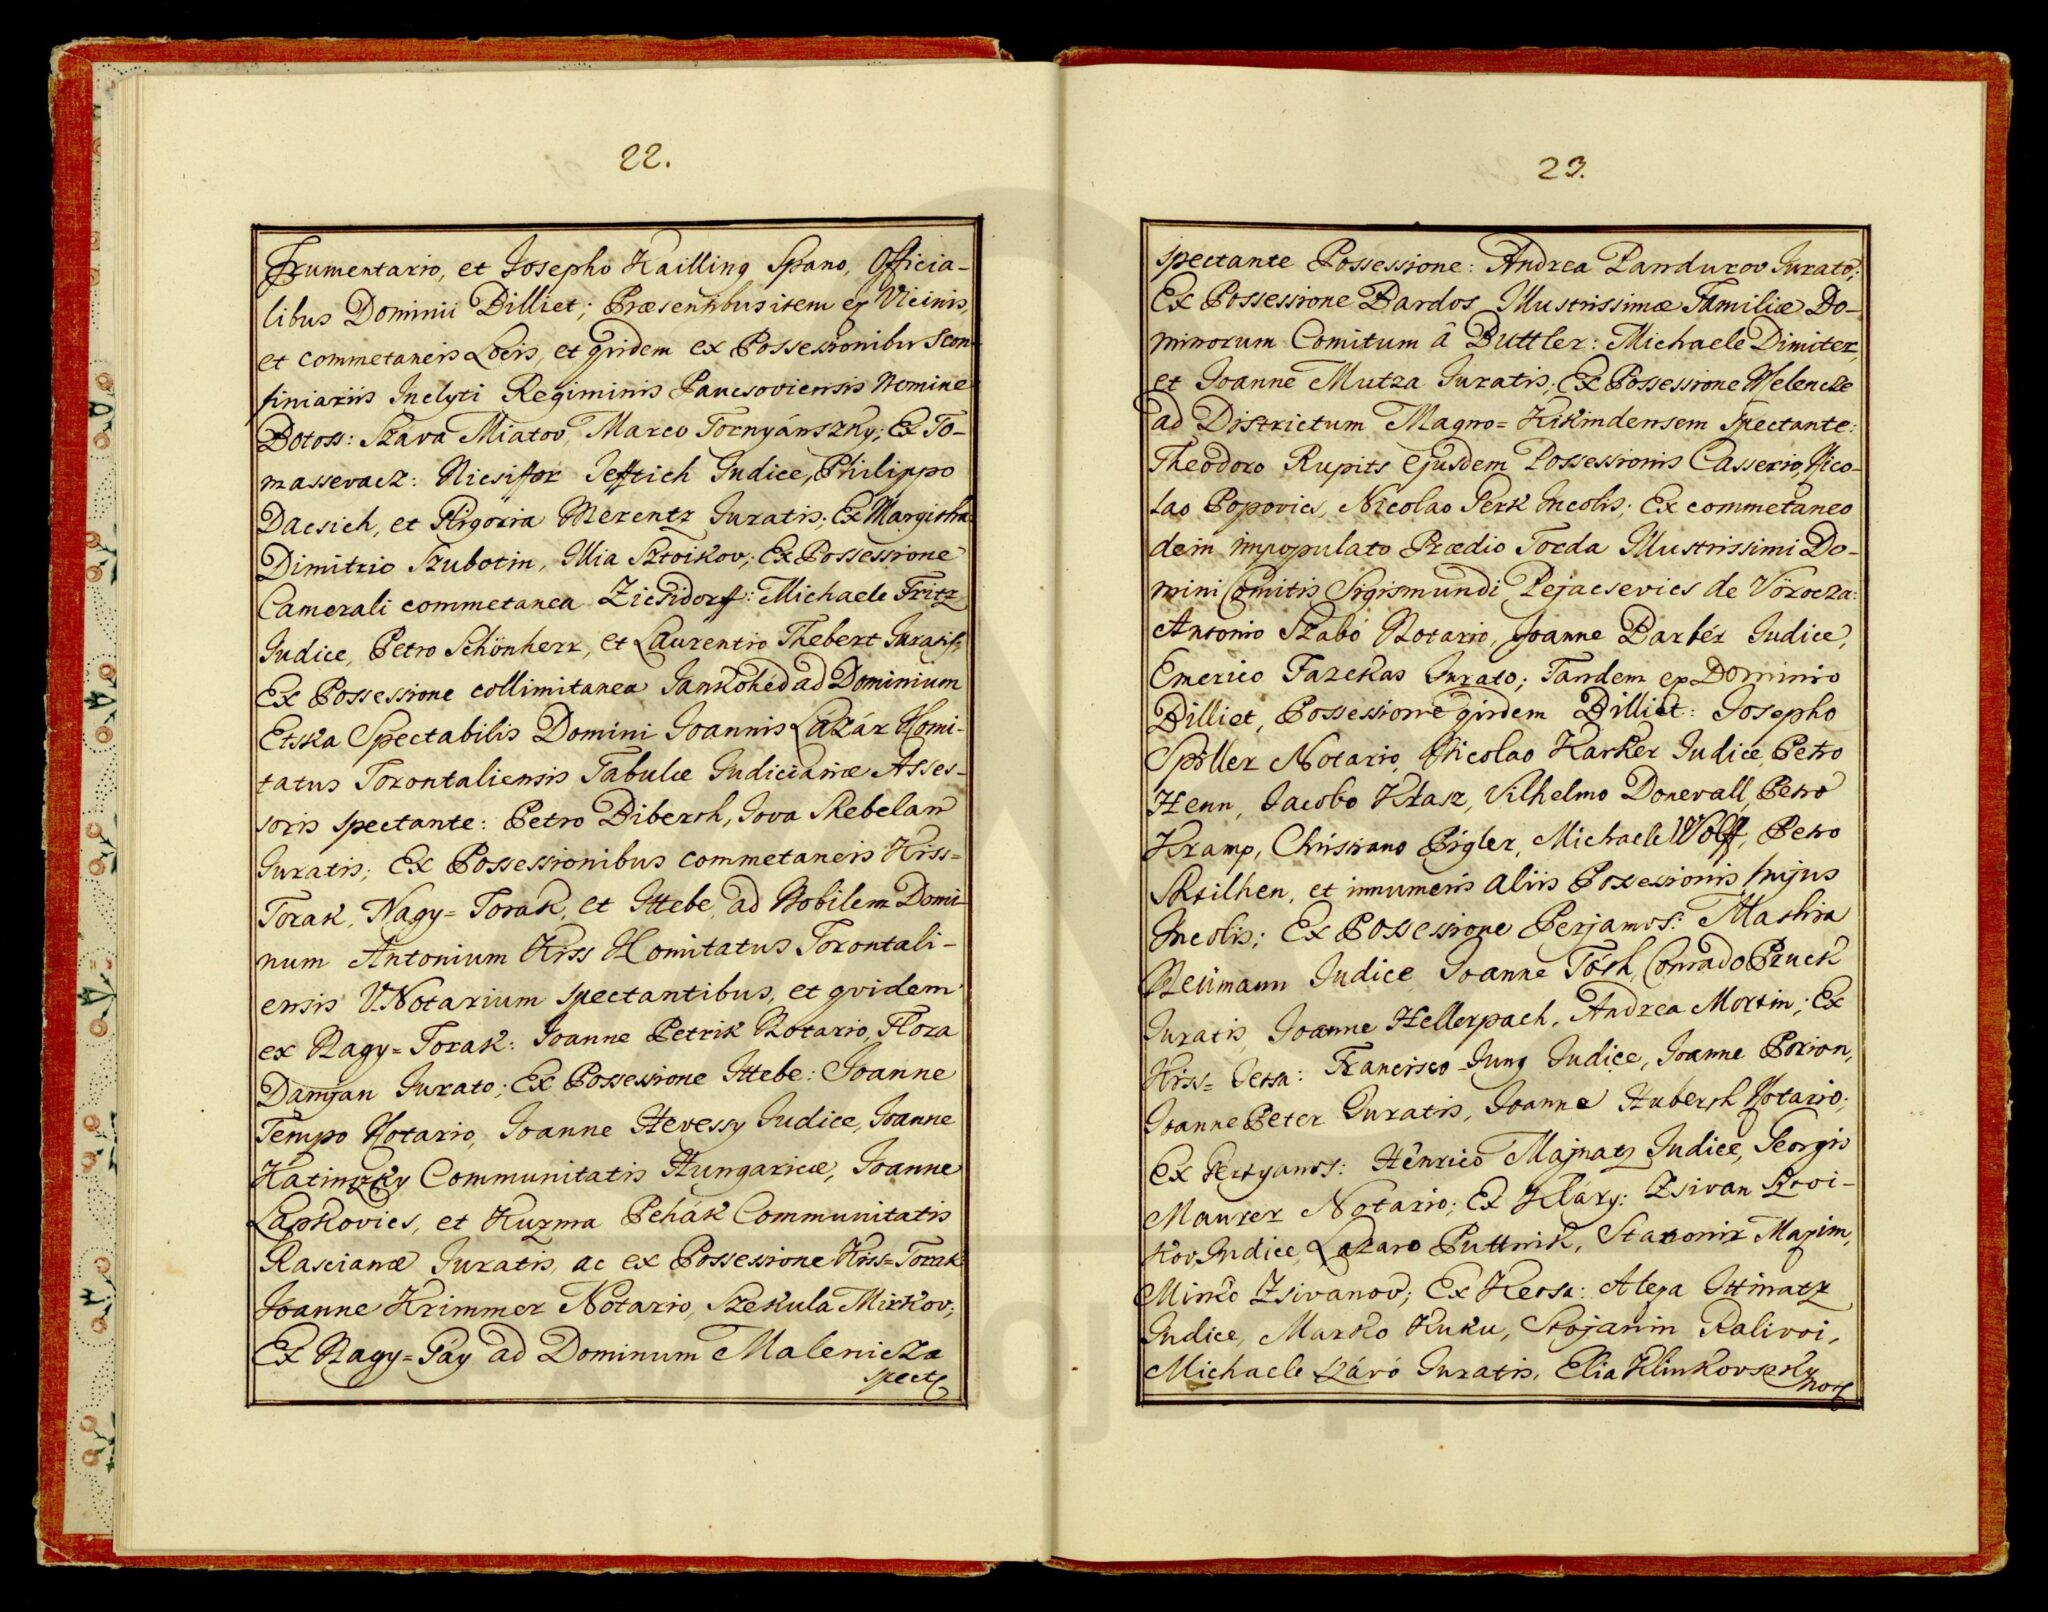 22.
Frumentario, et Josepho Hailling Spano, Officia-
libus Dominii Billiet; Præsentibus item ex Vicinis,
et commetaneis Locis, et qvidem ex Possessionibus Scon-
finiariis Inclyti Regiminis Pancsoviensis Nomine
Botoss: Szava Miatov, Marco Tornyánszky; Ex To-
massevacz: Nicsifor Jefftich Judice, Philippo
Dacsich, et Grigoria Merentz Juratis; Ex Margitha
Dimitrio Szubotin, Illia Sztoikov; Ex Possessione
Camerali commetanea Zichidorff: Michaele Fritz
Judice, Petro Schönherr, et Laurentio Thebert Juratis,
Ex Possessione collimitanea Jankohéd ad Dominium
Etska Spectabilis Domini Joannis Lázár Comi-
tatus Torontaliensis Tabulæ Judiciariæ Asses-
soris spectante: Petro Bibersh, Jova Skebelan
Juratis; Ex Possessionibus commetaneis Kiss=
Torak, Nagy=Torak, et Ittebe, ad Nobilem Domi-
num Antonium Kiss Comitatus Torontali-
ensis V.Notarium spectantibus, et qvidem
ex Nagy=Torak: Joanne Petrik Notario, Flora
Damjan Jurato; Ex Possessione Ittebe: Joanne
Tempo Notario, Joanne Hevessy Judice, Joanne
Katinszky Communitatis Hungaricæ, Joanne
Lapkovics, et Kuzma Pehák Communitatis
Rascianæ Juratis, ac ex Possessione Kiss=Torak
Joanne Krimmer Notario, Szekula Mirkov;
Ex Nagy=Gáy ad Dominum Malenicza
spect
23.
spectante Possessione: Andrea Pandurov Jurato;
Ex Possessione Bardos Illustrissimæ Familiæ Do-
minorum Comitum â Buttler: Michaele Dimiter,
et Joanne Mutza Juratis; Ex Possessione Melencze
ad Districtum Magno=Kikindensem Spectante:
Theodoro Rupits Ejusdem Possessionis Casserio, Nico-
lao Popovics, Nicolao Perk Incolis; Ex commetaneo
dein impopulato Prædio Torda Illustrissimi Do-
mini Comitis Sigismundi Pejacsevics de Vörocza:
Antonio Szabó Notario, Joanne Barbér Judice,
Emerico Fazekas Jurato; Tandem ex Dominio
Billiet, Possessione qvidem Billiet: Josepho
Spöller Notario, Nicolao Karker Judice, Petro
Henn, Jacobo Krasz, Vilhelmo Donevall, Petro
Kramp, Christiano Pigler, Michaele Wolff, Petro
et innumeris aliis Possessionis hujus
Incolis; Ex Possessione Perjamos: Mathia
Neümann Judice Joanne Tösh, Conrado Pruck
Juratis, Joanne Hellerpach, Andrea Mortin; Ex
Kiss=Jetsa: Francisco Jung Judice, Joanne Porion,
Joanne Peter Juratis, Joanne Hubersh Notario;
Ex Pertyamos: Henrico Majnatz Judice, Georgio
Maurer Notario; Ex Kláry: Zsivan Sztoi-
kov Judice, Lazaro Puttnik, Stanomir Maxim,
Minko Zsivanov; Ex Kecsa: Alexa Ittinatz
Judice, Marko Kuku, Stojanin Ralivoi,
Michaele Szávó Juratis, Elia Klinkovszky
not